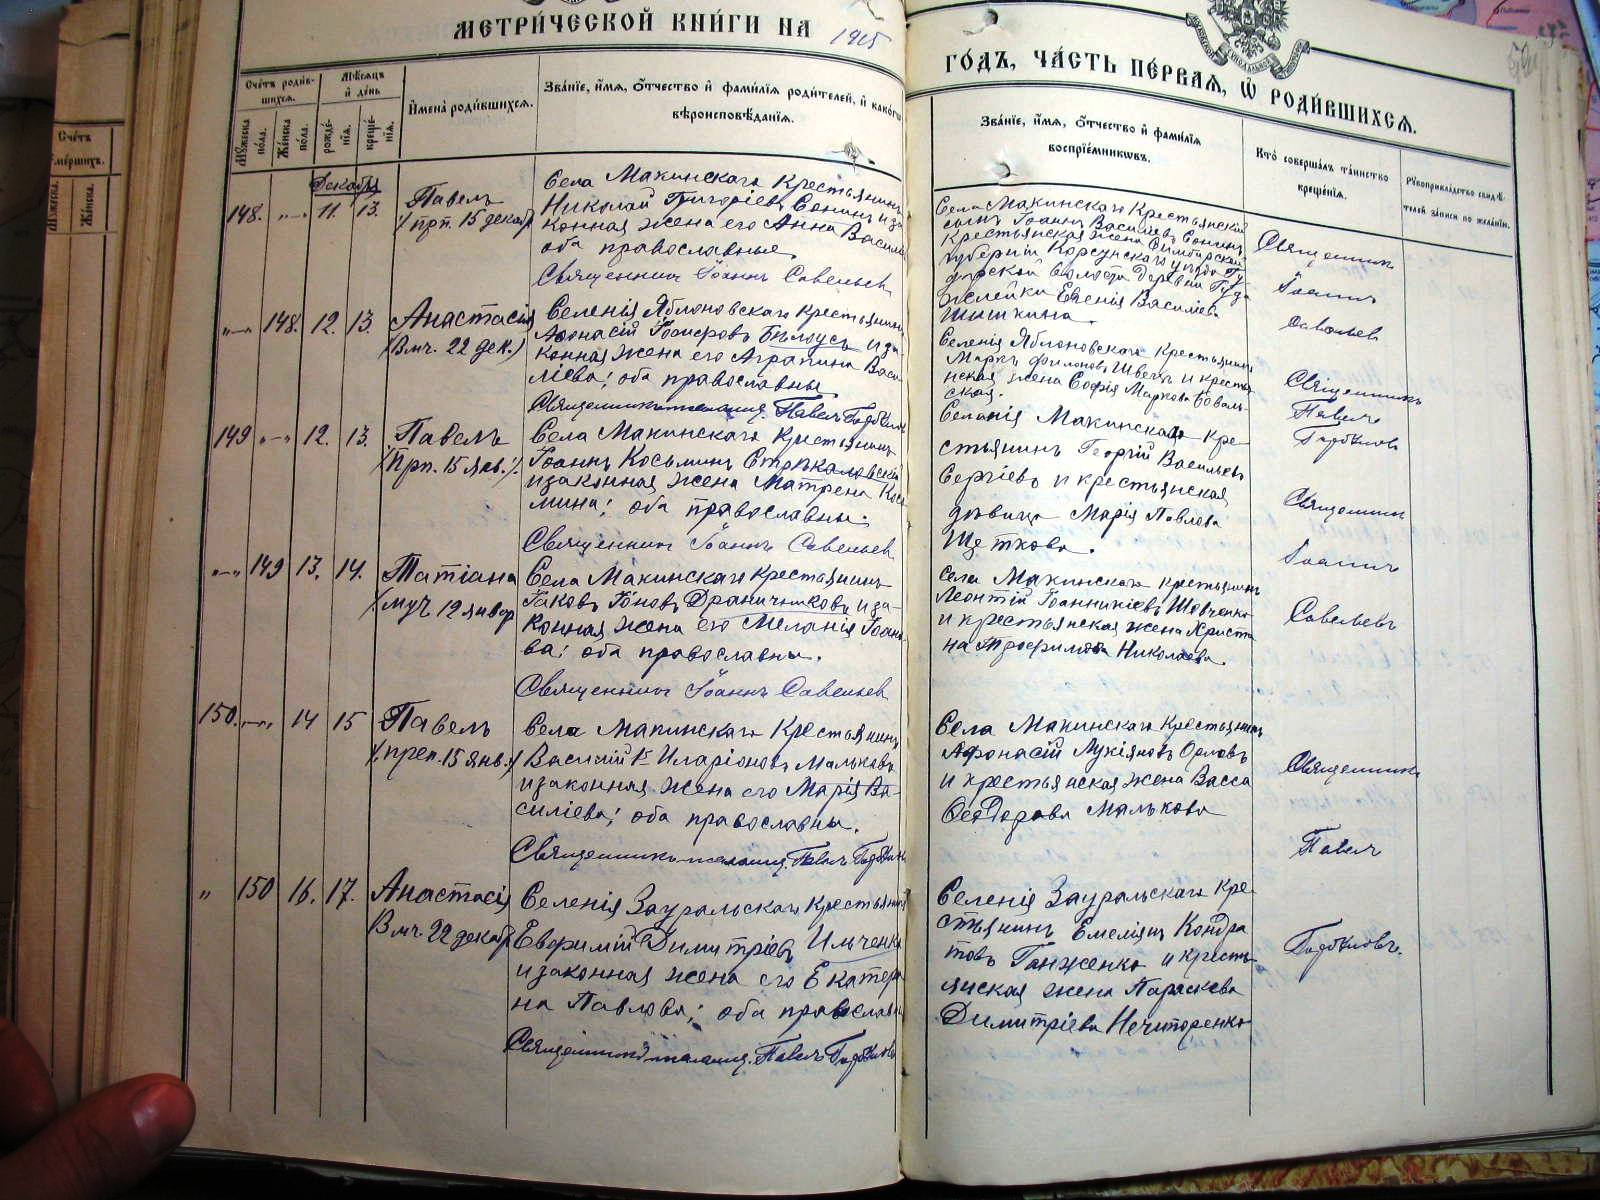 МЕТРИ́ЧЕСКОЙ КНИ́ГИ НА 1915
ГО́ДЪ, ЧА́СТЬ ПЕ́РВАѦ, Ѡ҆ РОДИ́ВШИХСѦ.
Сче́тъ роди́в-
шихсѧ.
Мѣ́сѧцъ
и҆ де́нь
Мꙋ́жеска
по́ла.
Же́нска
по́ла.
рожде́-
нїѧ.
креще́-
нїѧ.
И҆мена̀ роди́вшихсѧ.
Зва́нїе, и҆́мѧ, ѻ҆́тчество и҆ фами́лїѧ роди́телей, и҆ како́гѡ
вѣроисповѣ́данїѧ.
Зва́нїе, и҆́мѧ, ѻ҆́тчество и҆ фами́лїѧ
воспрїе́мникѡвъ.
Кто̀ соверша́лъ та́инство
креще́нїѧ.
Рꙋкоприкла́дство свидѣ́-
телей за́писи по жела́нїю.
Сче́тъ
Мꙋ́жеска.
Же́нска.
Декабрь
148. „—„ 11. 13.
Павелъ
(прп. 15 декаб)
Села Макинскаго Крестьянинъ
Николай Григоріевъ Сонинъ и за-
конная жена его Анна Васили
оба православные.
Священникъ Іоаннъ Савельевъ
Села Макинскаго Крестьянскій
сынъ Іоаннъ Василіевъ Сонинъ
крестьянская жена Симбирской
губерніи Корсунскаго уѣзда
Евгенія Василіева
Шишкина.
Священникъ
Іоаннъ
Савельевъ
„—„ 148. 12. 13.
Анастасія
(Вмч. 22 дек.)
Селенія Яблоновскаго Крестьянинъ
Афонасій Іосифовъ Бѣлоусъ и за-
конная жена его Агрипина Васи
ліева; оба православны
Священникъ Павелъ
Селенія Яблоновскаго Крестьянинъ
Маркъ Филоновъ Швецъ и крестья
нская жена Софія Маркова Коваль-
ская.
Священникъ
Павелъ
149 „—„ 12. 13.
Павелъ
(Прп. 15 янв.)
Села Макинскаго Крестьянинъ
Іоаннъ Косьминъ Стрѣкаловскій
и законная жена Матрена Кось
мина; оба православны.
Священникъ Іоаннъ Савельевъ
Селенія Макинскаго кре-
стьянинъ Георгій Васильевъ
Сергіевъ и крестьянская
дѣвица Марія Павлова
Щеткова.
Священникъ
Іоаннъ
Савельевъ
„—„ 149 13. 14.
Татіана
(муч. 12 январ
Села Макинскаго Крестьянинъ
Іаковъ Іоновъ Драничниковъ и за-
конная жена его Меланія Іоанно
ва; оба православны.
Священникъ Іоаннъ Савельевъ
Села Макинскаго крестьянинъ
Леонтій Іоанникіевъ Шевченко
и крестьянская жена Христи
на Трофимова Николаева.
150. „—„ 14 15
Павелъ
(преп. 15 янв.)
Села Макинскаго Крестьянинъ
Василій 1й Иларіоновъ Мальковъ
и законная жена его Марія Ва-
силіева; оба православны.
Священникъ Павелъ
Села Макинскаго Крестьянинъ
Афонасій Лукіяновъ Орловъ
и крестьянская жена Васса
Феодорова Малькова
Священникъ
Павелъ
„ 150 16. 17.
Анастасія
Вмч. 22 декабр
Селенія Зауральскаго крестьянинъ
Евфимій Димитріевъ Ильченко
и законная жена его Екатери
на Павлова; оба православн
Священникъ Павелъ
Селенія Зауральскаго кре-
стьянинъ Емеліанъ Кондра
товъ Ганженко и кресть-
янская жена Параскева
Димитріева Нечипоренко